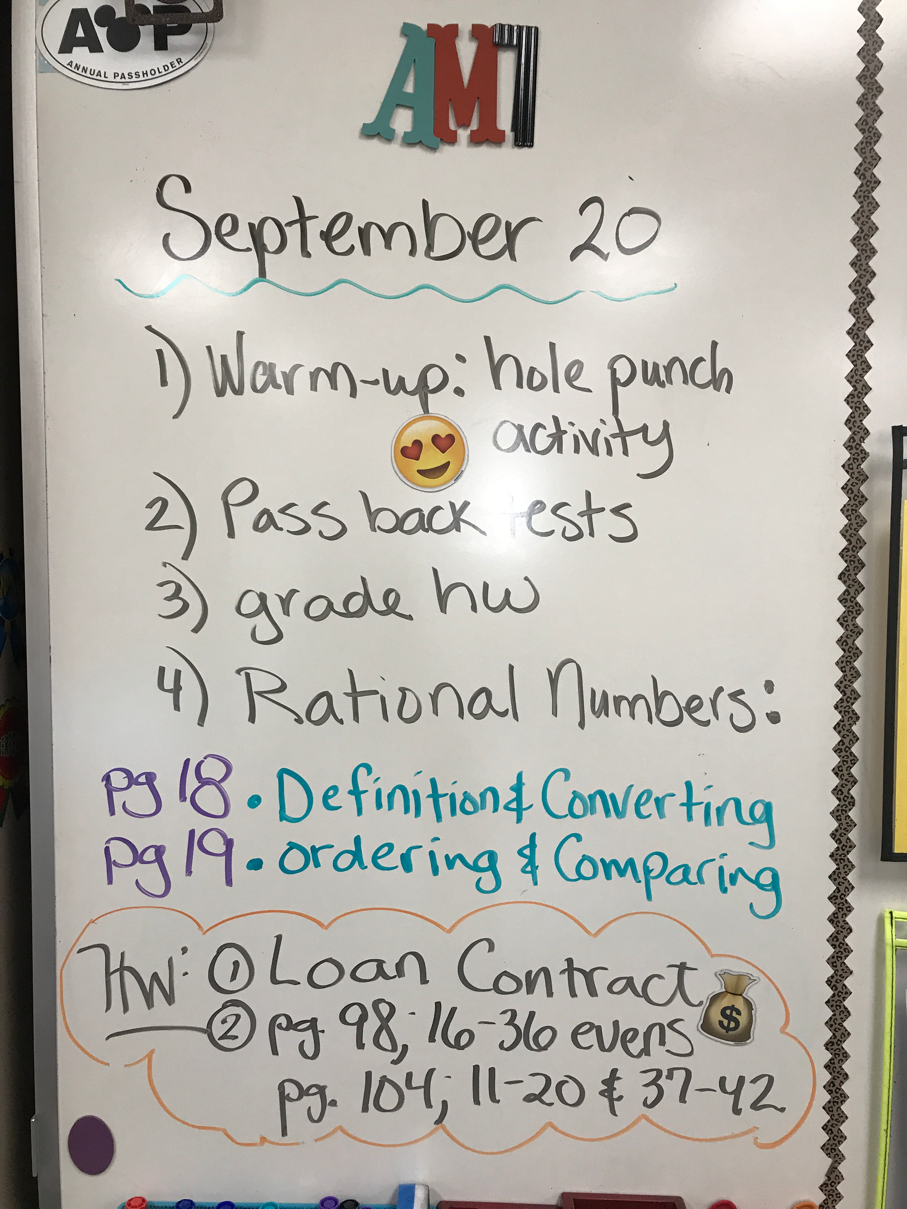 AP
ANNUAL PASSHOLDER
AM7
September 20
1) Warm-up: hole punch
activity
2) Pass back tests
3) grade hw
4) Rational Numbers:
pg 18 • Definition & Converting
pg 19 • Ordering & Comparing
HW: ① Loan Contract
$
② pg. 98; 16-36 evens
pg. 104; 11-20 & 37-42